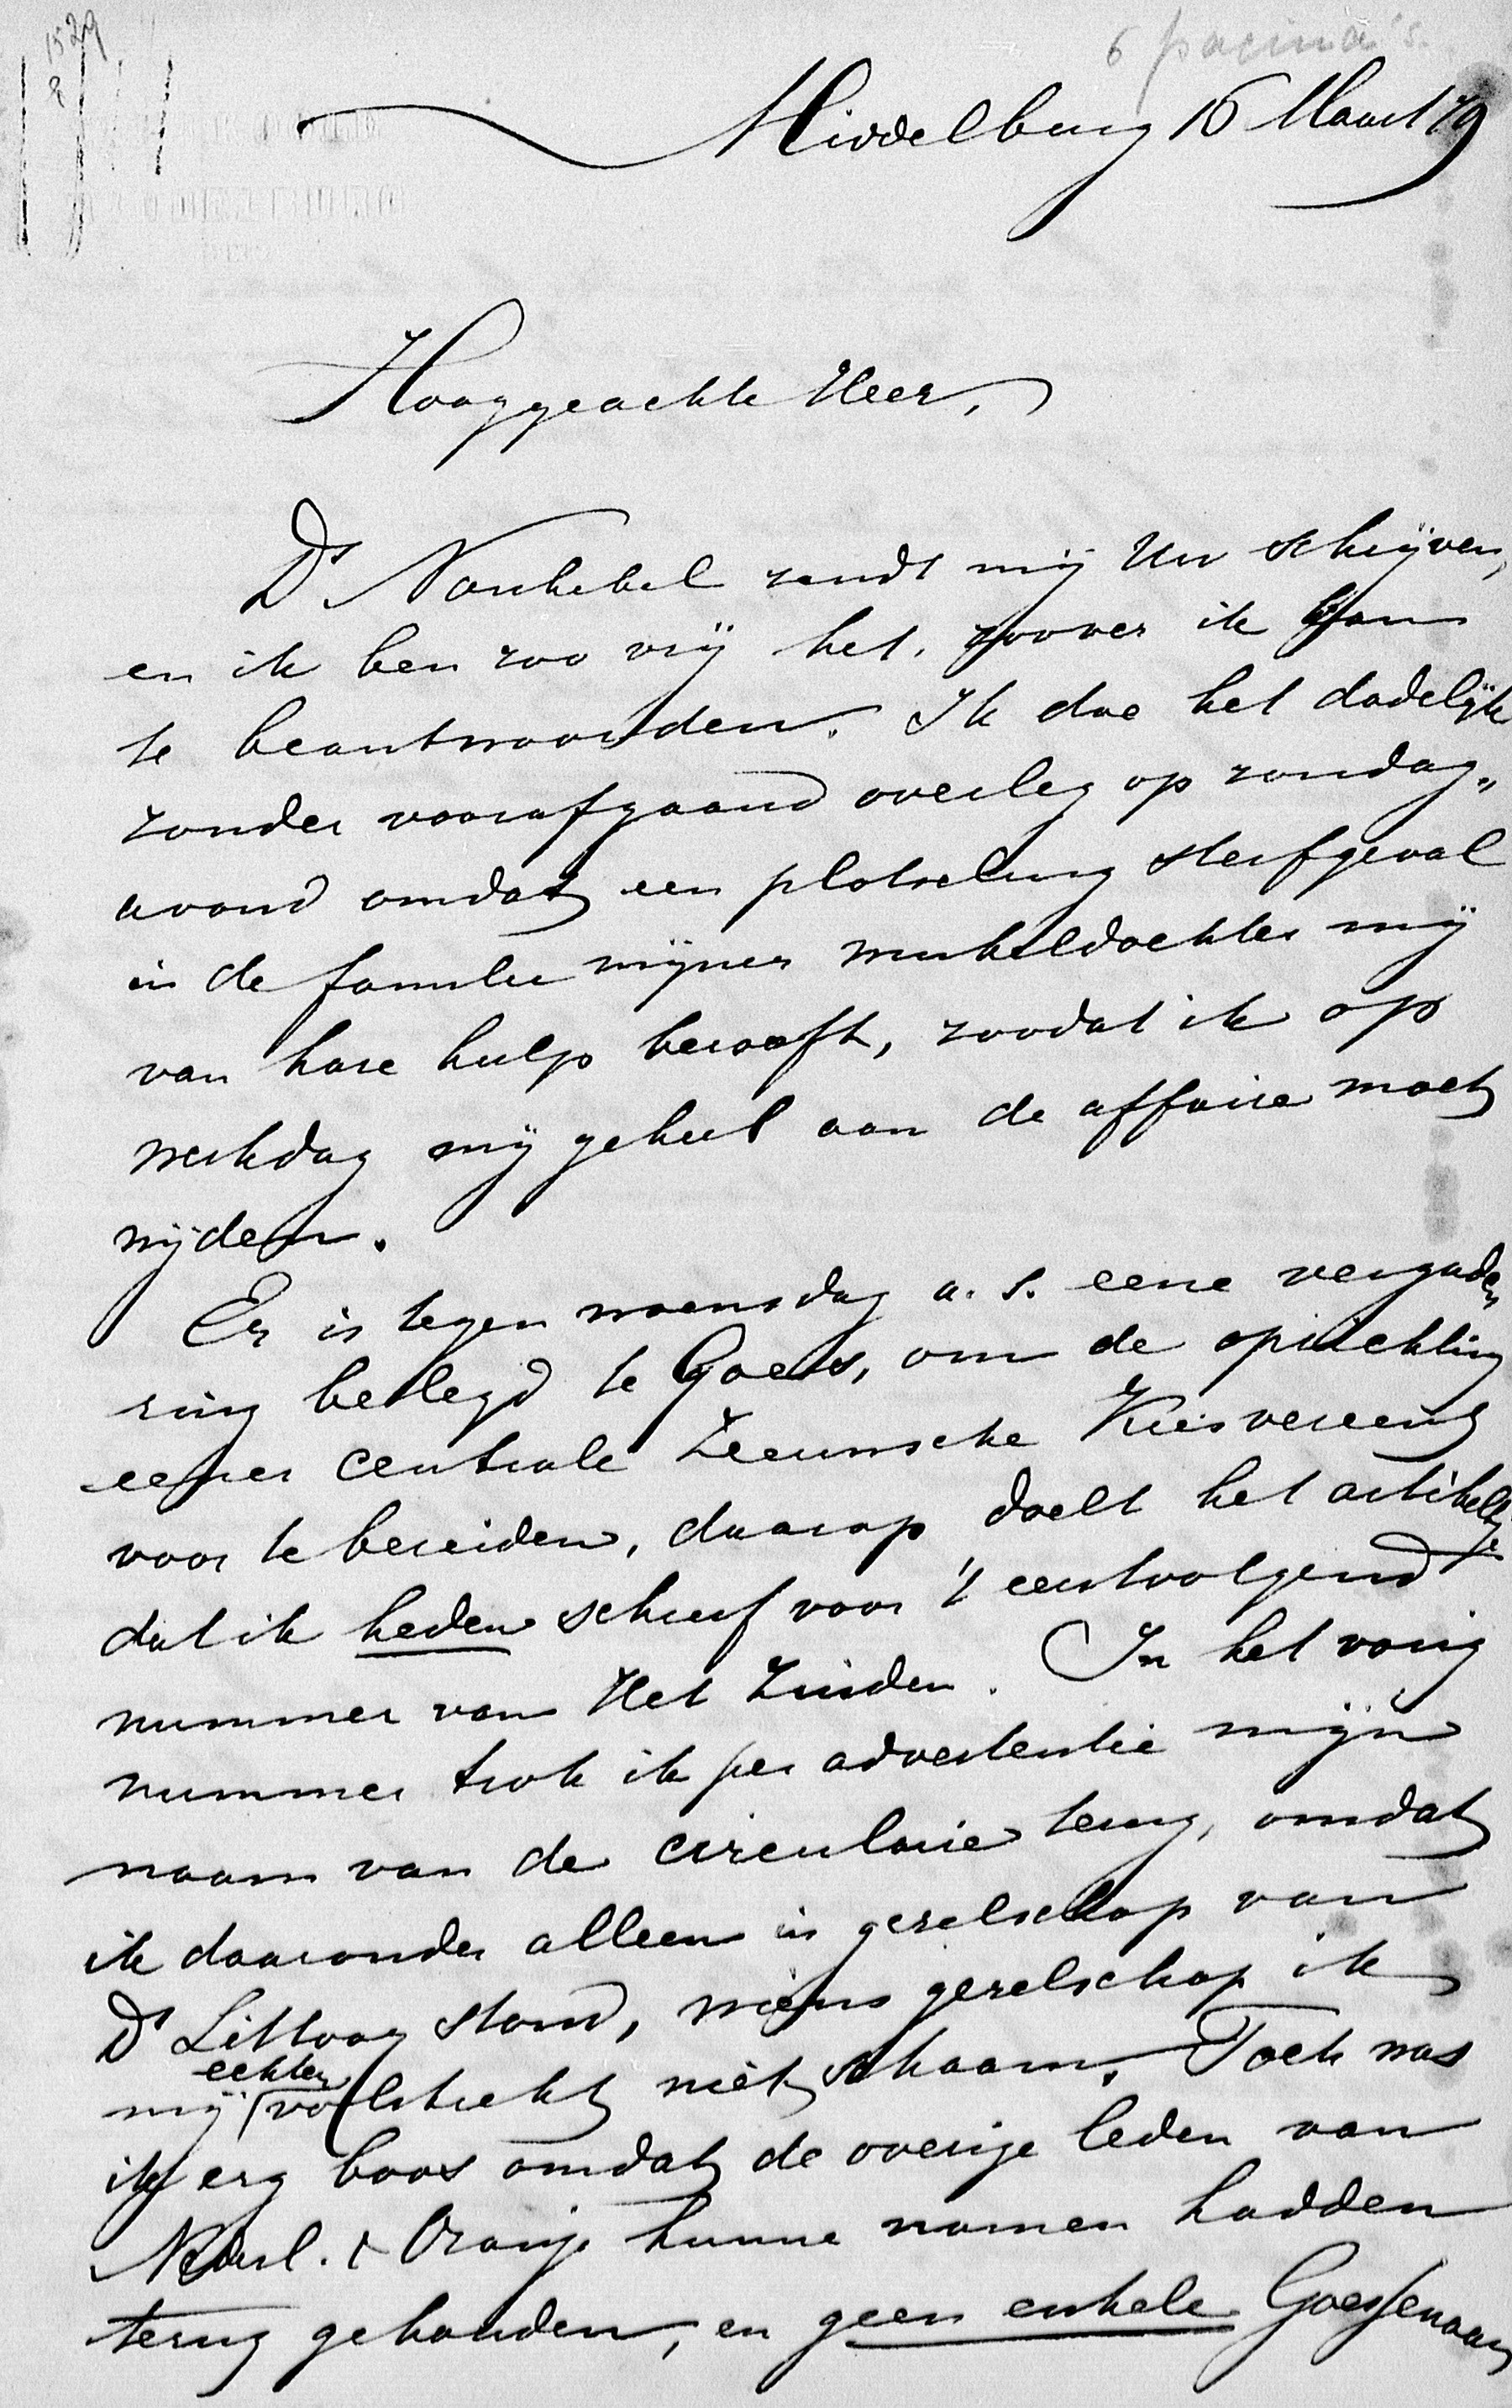 1529
6 pagina's.
Middelburg 16 Maart 79
Hooggeachte Heer,
Ds Nonhebel zendt mij Uw schrijven,
en ik ben zoo vrij het, zoover ik kan
te beantwoorden. Ik doe het dadelijk
zonder voorafgaand overleg op zondag„
avond omdat een plotseling sterfgeval
in de familie mijner winkeldochter mij
van hare hulp berooft, zoodat ik op
werkdag mij geheel aan de affaire moet
wijden.
Er is tegen woensdag a. s. eene vergade„
ring belegd te Goes, om de oprichting
eener centrale Zeeuwsche Kiesvereenig
voor te bereiden, daarop doelt het artikeltje
dat ik heden schreef voor 't eerstvolgend
nummer van Het Zuiden. In het vorig
nummer trok ik per advertentie mijn
naam van de circulaire terug, omdat
ik daaronder alleen in gezelschap van
Ds Littooy stond, wiens gezelschap ik
echter
mij volstrekt niet schaam. Toch was
ik erg boos omdat de overige leden van
Nederl. & Oranje hunne namen hadden
terug gehouden, en geen enkele Goessenaar